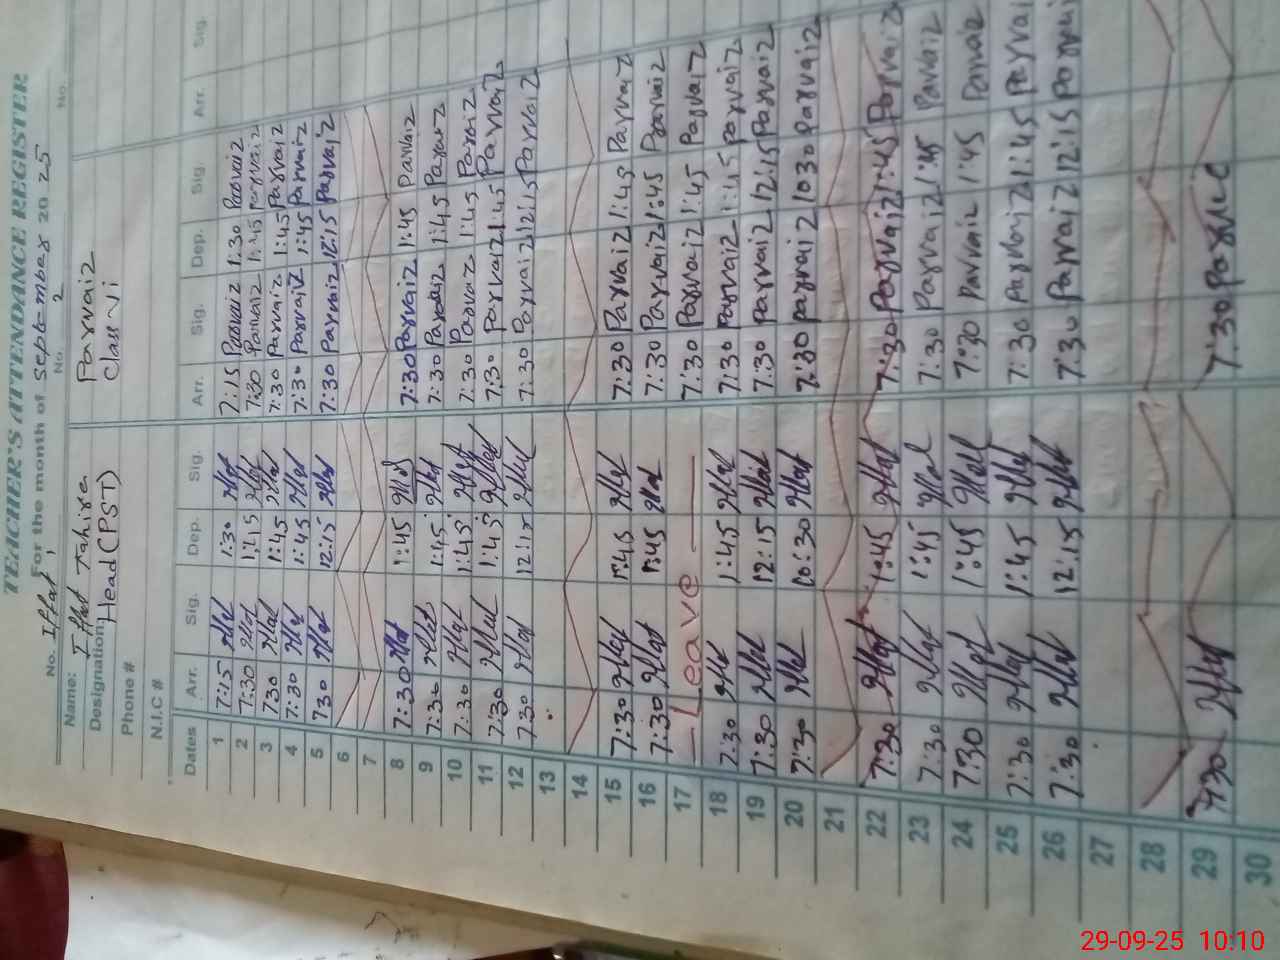 TEACHER'S ATTENDANCE REGISTER
For the month of September 2025
No. Iffat No. 2 No.
Name: Iffat Tahira Parvaiz
Designation: Head (PST) Class VI
Phone #
N.I.C #
Dates Arr. Sig. Dep. Sig. Arr. Sig. Dep. Sig. Arr. Sig.
1 7:15 Iffat 1:30 Iffat 7:15 Parvaiz 1:30 Parvaiz
2 7:30 Iffat 1:45 Iffat 7:30 Parvaiz 1:45 Parvaiz
3 7:30 Iffat 1:45 Iffat 7:30 Parvaiz 1:45 Parvaiz
4 7:30 Iffat 1:45 Iffat 7:30 Parvaiz 1:45 Parvaiz
5 7:30 Iffat 12:15 Iffat 7:30 Parvaiz 12:15 Parvaiz
6
7
8 7:30 Iffat 1:45 Iffat 7:30 Parvaiz 1:45 Parvaiz
9 7:30 Iffat 1:45 Iffat 7:30 Parvaiz 1:45 Parvaiz
10 7:30 Iffat 1:45 Iffat 7:30 Parvaiz 1:45 Parvaiz
11 7:30 Iffat 1:45 Iffat 7:30 Parvaiz 1:45 Parvaiz
12 7:30 Iffat 12:15 Iffat 7:30 Parvaiz 12:15 Parvaiz
13
14
15 7:30 Iffat 1:45 Iffat 7:30 Parvaiz 1:45 Parvaiz
16 7:30 Iffat 1:45 Iffat 7:30 Parvaiz 1:45 Parvaiz
17 Leave 7:30 Parvaiz 1:45 Parvaiz
18 7:30 Iffat 1:45 Iffat 7:30 Parvaiz 1:45 Parvaiz
19 7:30 Iffat 12:15 Iffat 7:30 Parvaiz 12:15 Parvaiz
20 7:30 Iffat 10:30 Iffat 7:30 Parvaiz 10 30 Parvaiz
21
22 7:30 Iffat 1:45 Iffat 7:30 Parvaiz 1:45 Parvaiz
23 7:30 Iffat 1:45 Iffat 7:30 Parvaiz 1:45 Parvaiz
24 7:30 Iffat 1:45 Iffat 7:30 Parvaiz 1:45 Parvaiz
25 7:30 Iffat 1:45 Iffat 7:30 Parvaiz 1:45 Parvaiz
26 7:30 Iffat 12:15 Iffat 7:30 Parvaiz 12:15 Parvaiz
27
28
29 7:30 Iffat 7:30 Parvaiz
30
29-09-25 10:10